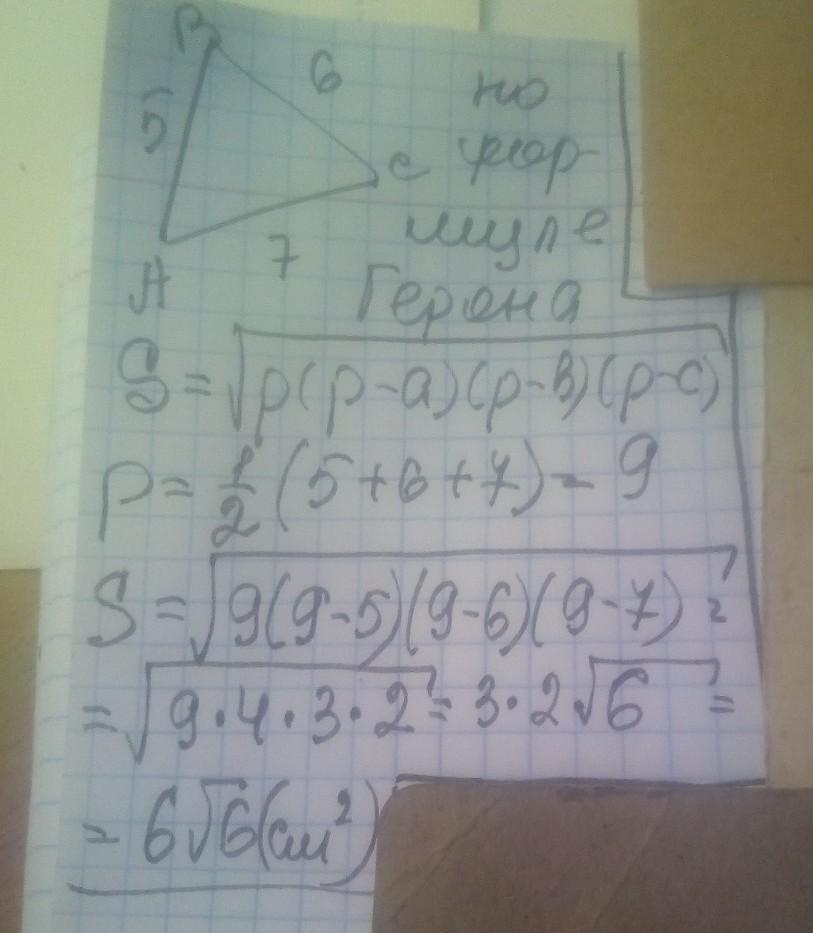 B
6
5
C
7
A
по
фор-
муле
Герона
S = √p(p-a)(p-b)(p-c)
p = 1/2 (5+6+7) = 9
S = √9(9-5)(9-6)(9-7) =
= √9·4·3·2 = 3·2√6 =
= 6√6 (см²)